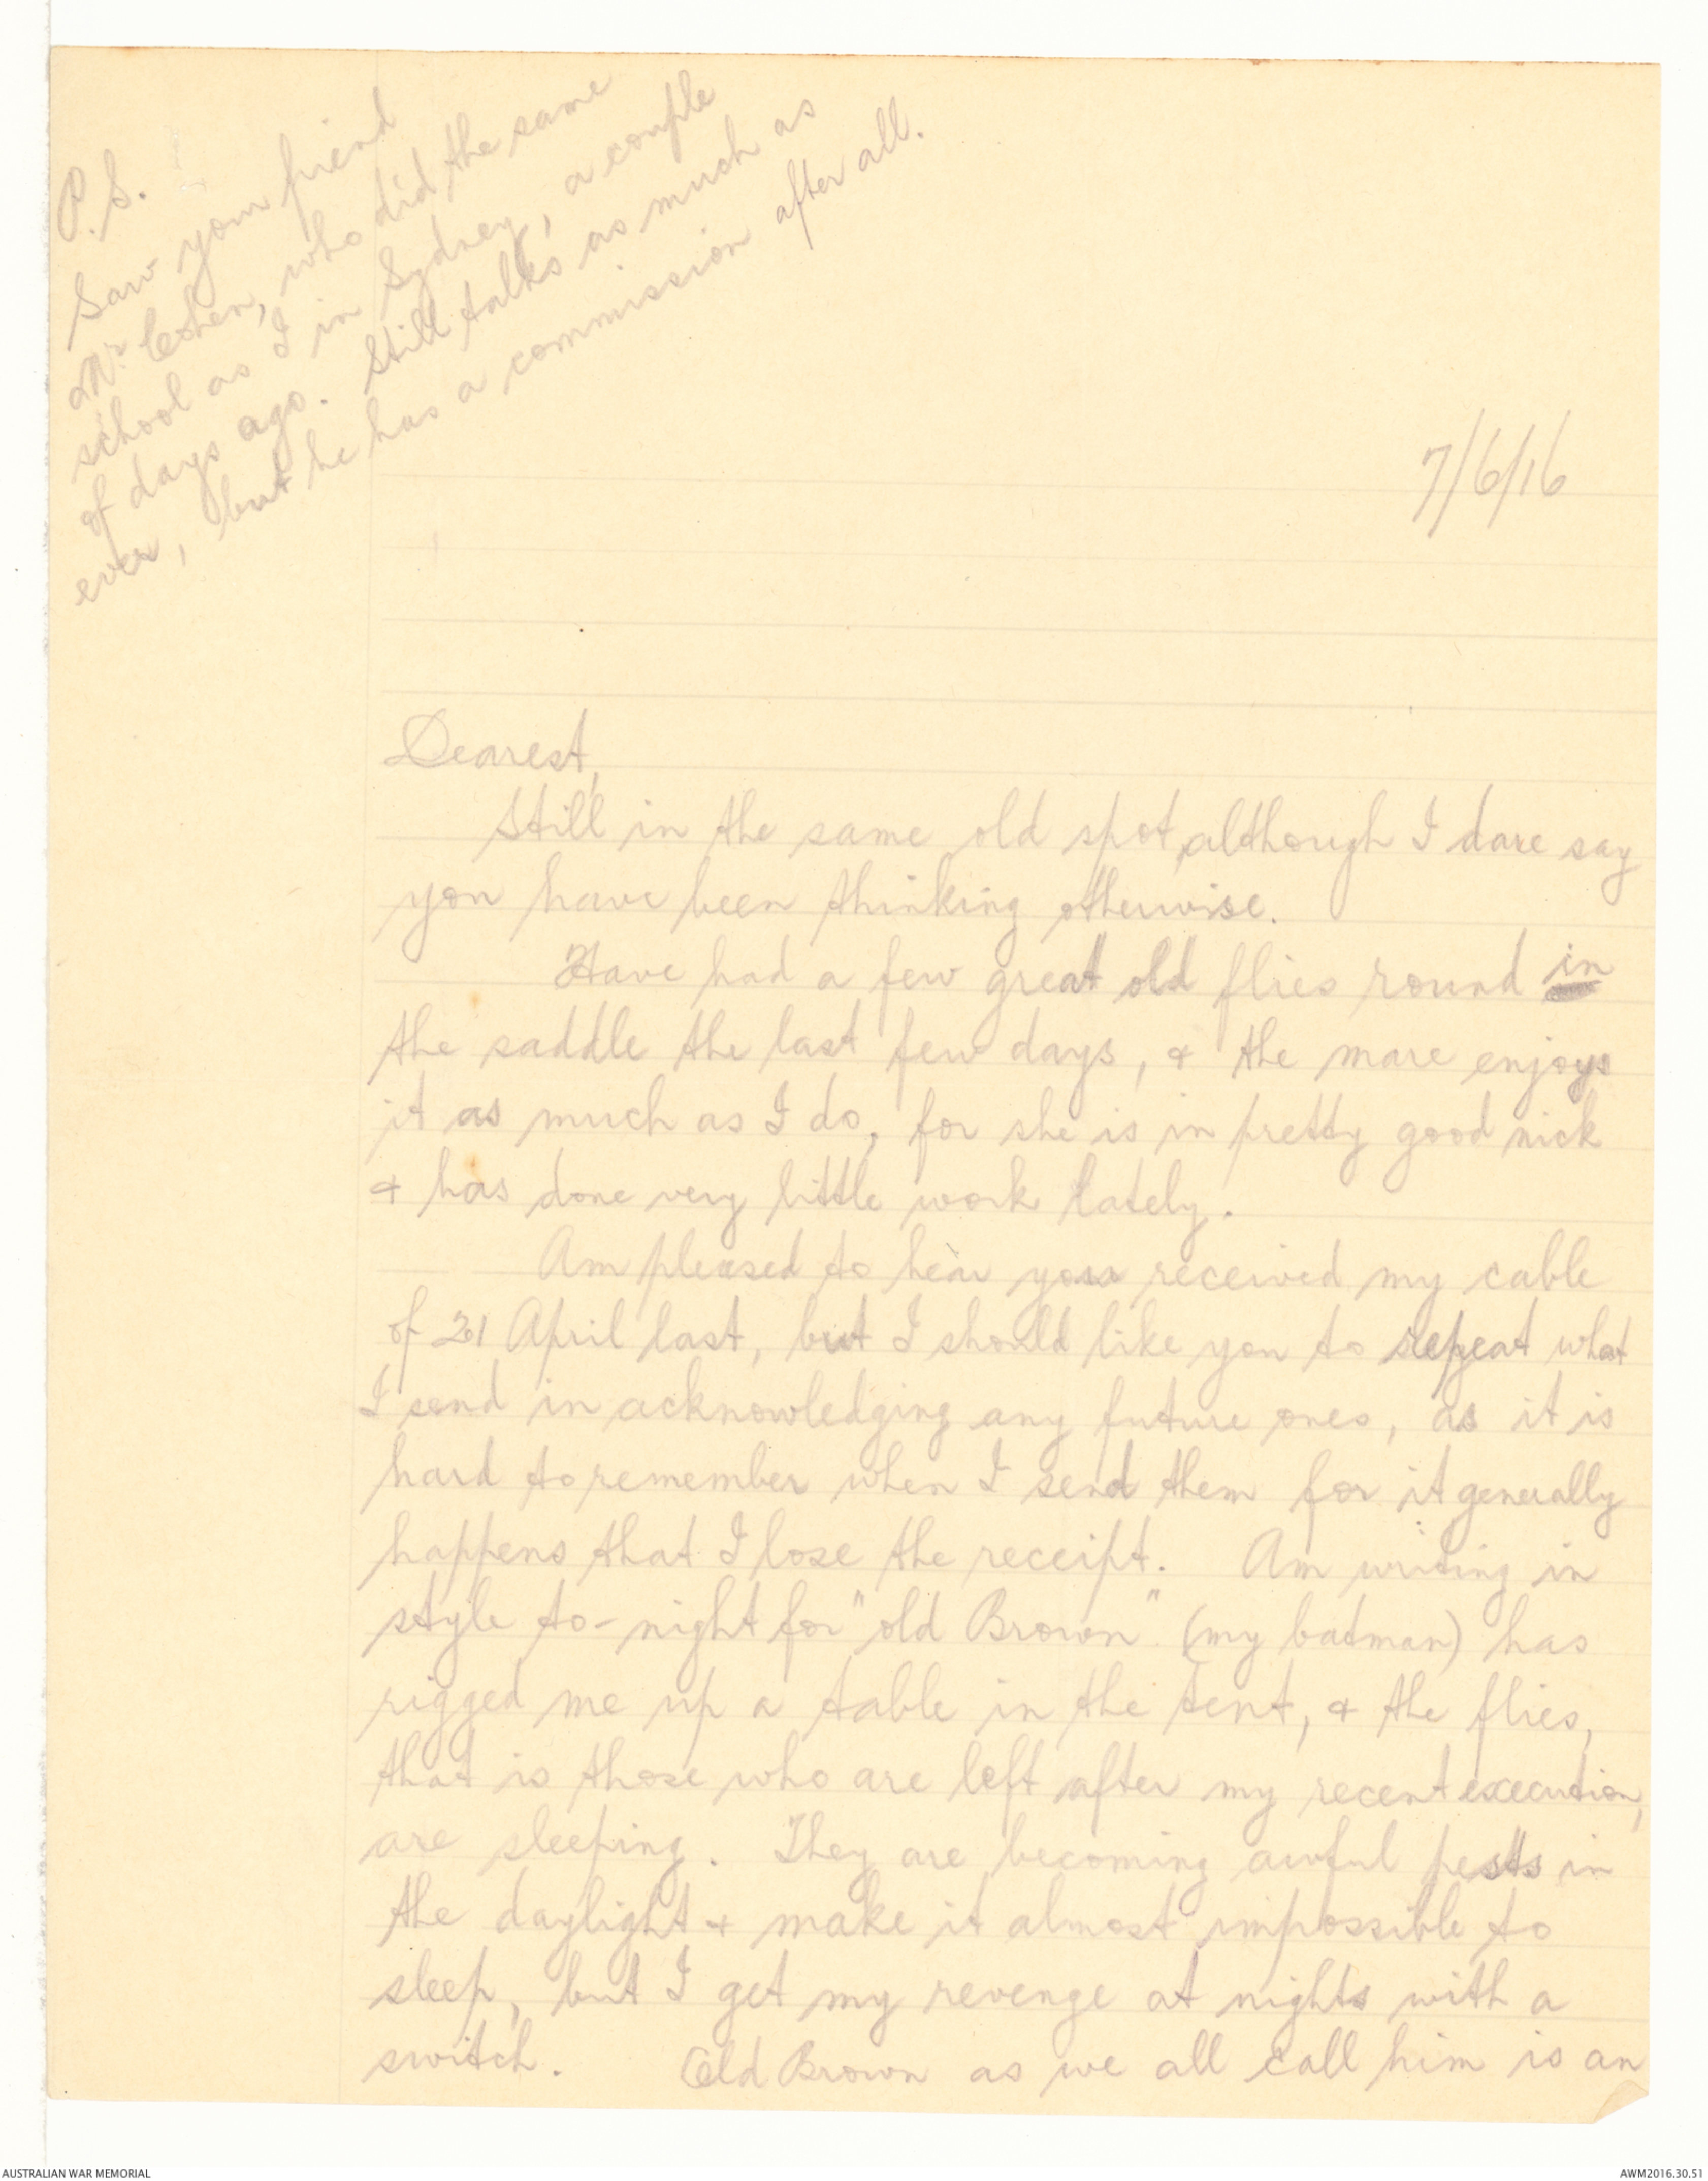 P.S.
Saw your friend
Mr. Cohen, who did the same
school as I in Sydney, a couple
of days ago. Still talks as much as
ever, but he has a commission after all.
7/6/16
Dearest,
Still in the same old spot, although I dare say
you have been thinking otherwise.
Have had a few great old flies round in
the saddle the last few days, & the mare enjoys
it as much as I do, for she is in pretty good nick
& has done very little work lately.
Am pleased to hear you received my cable
of 21 April last, but I should like you to repeat what
I send in acknowledging any future ones, as it is
hard to remember when I send them for it generally
happens that I lose the receipt. Am writing in
style to-night for "old Brown" (my batman) has
rigged me up a table in the tent, & the flies,
that is those who are left after my recent execution,
are sleeping. They are becoming awful pests in
the daylight & make it almost impossible to
sleep, but I get my revenge at nights with a
switch. Old Brown as we all call him is an
AUSTRALIAN WAR MEMORIAL
AWM2016.30.51